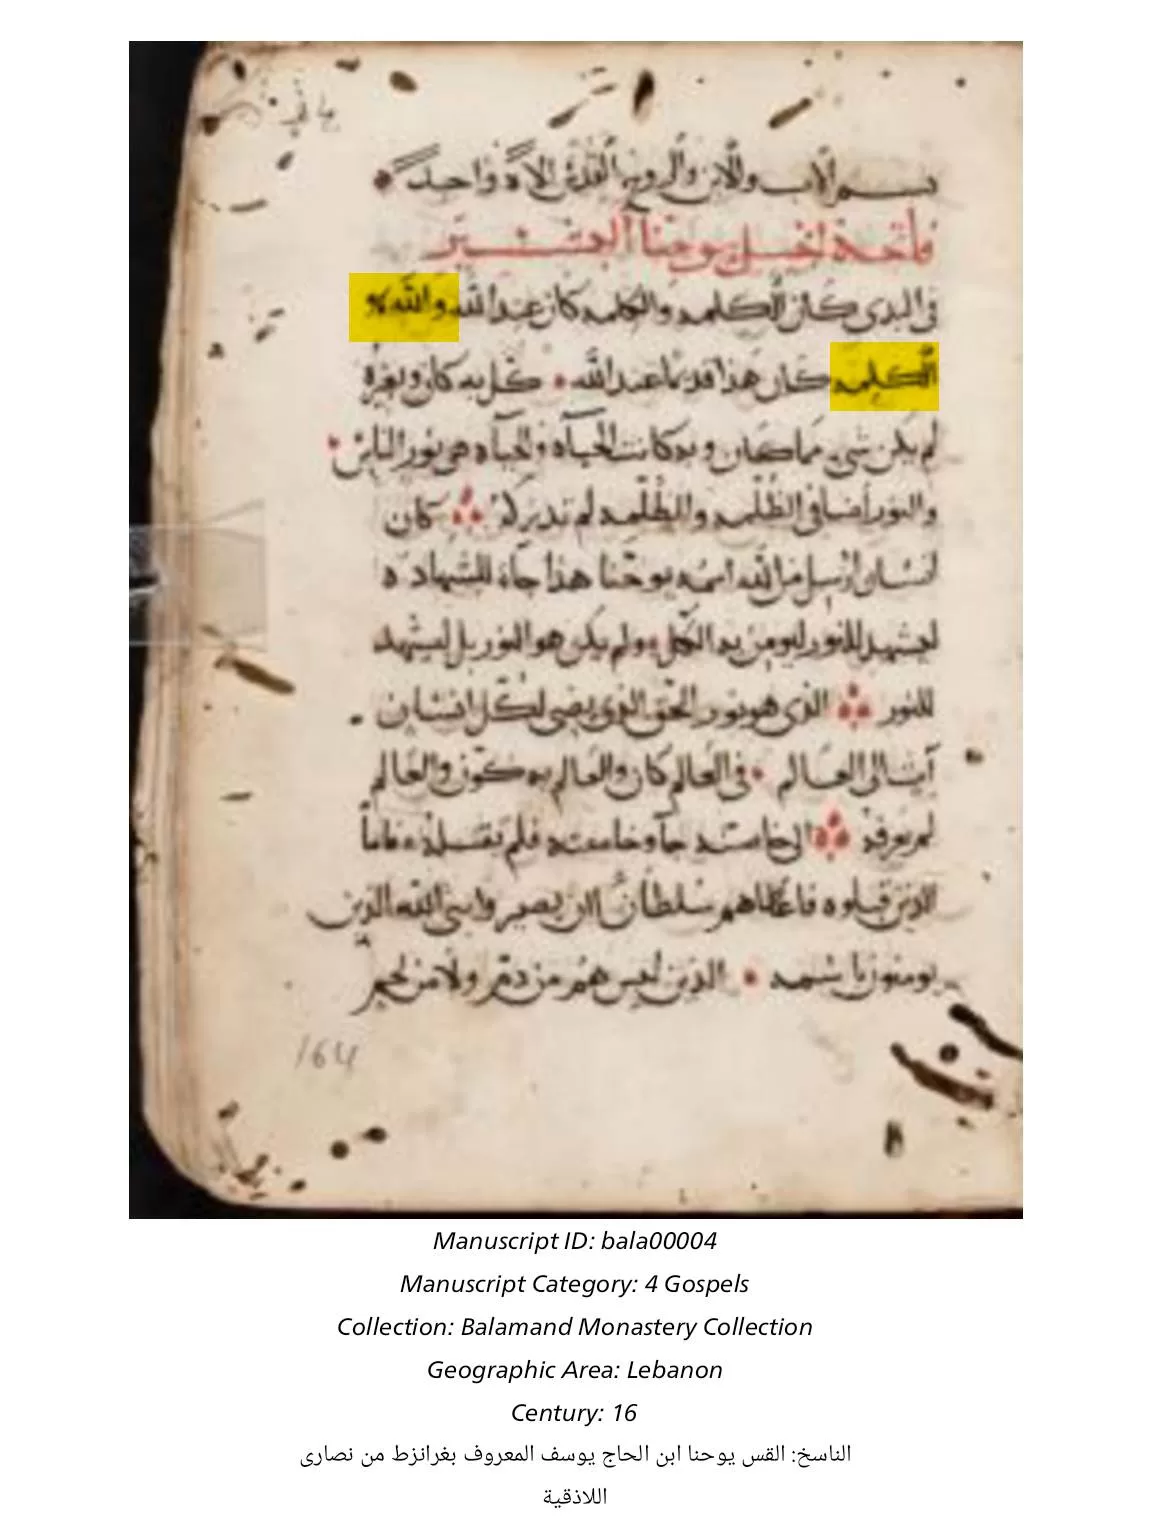 بسم الاب والابن والروح القدس الاله واحد
فاتحة انجيل يوحنا البشير
فى البدى كان الكلمه والكلمه كان عند الله والله هو
الكلمه كان هذا قديما عند الله كل به كان وبغيره
لم يكن شى مما كان وبه كانت الحياه والحياه هى نور الناس
والنور أضا فى الظلمه والظلمه لم تدركه كان
انسان أرسل من الله اسمه يوحنا هذا جاء للشهاده
ليشهد للنور ليومن به الكل ولم يكن هو النور بل ليشهد
للنور الذى هو نور الحق الذى يضى لكل انسان
آت الى العالم فى العالم كان والعالم به كون والعالم
لم يعرفه الى خاصته جا وخاصته فلم تقبله فاما
الذين قبلوه فاعطاهم سلطان ان يصيروا بنى الله الذين
يومنون باسمه الذين ليس هم من دم ولا من لحم
164
Manuscript ID: bala00004
Manuscript Category: 4 Gospels
Collection: Balamand Monastery Collection
Geographic Area: Lebanon
Century: 16
الناسخ: القس يوحنا ابن الحاج يوسف المعروف بغرانزط من نصارى
اللاذقية